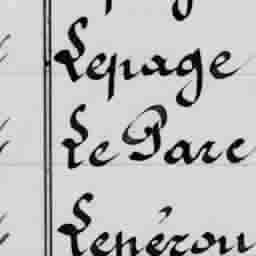 Lepage
Le Parc
Lepérou